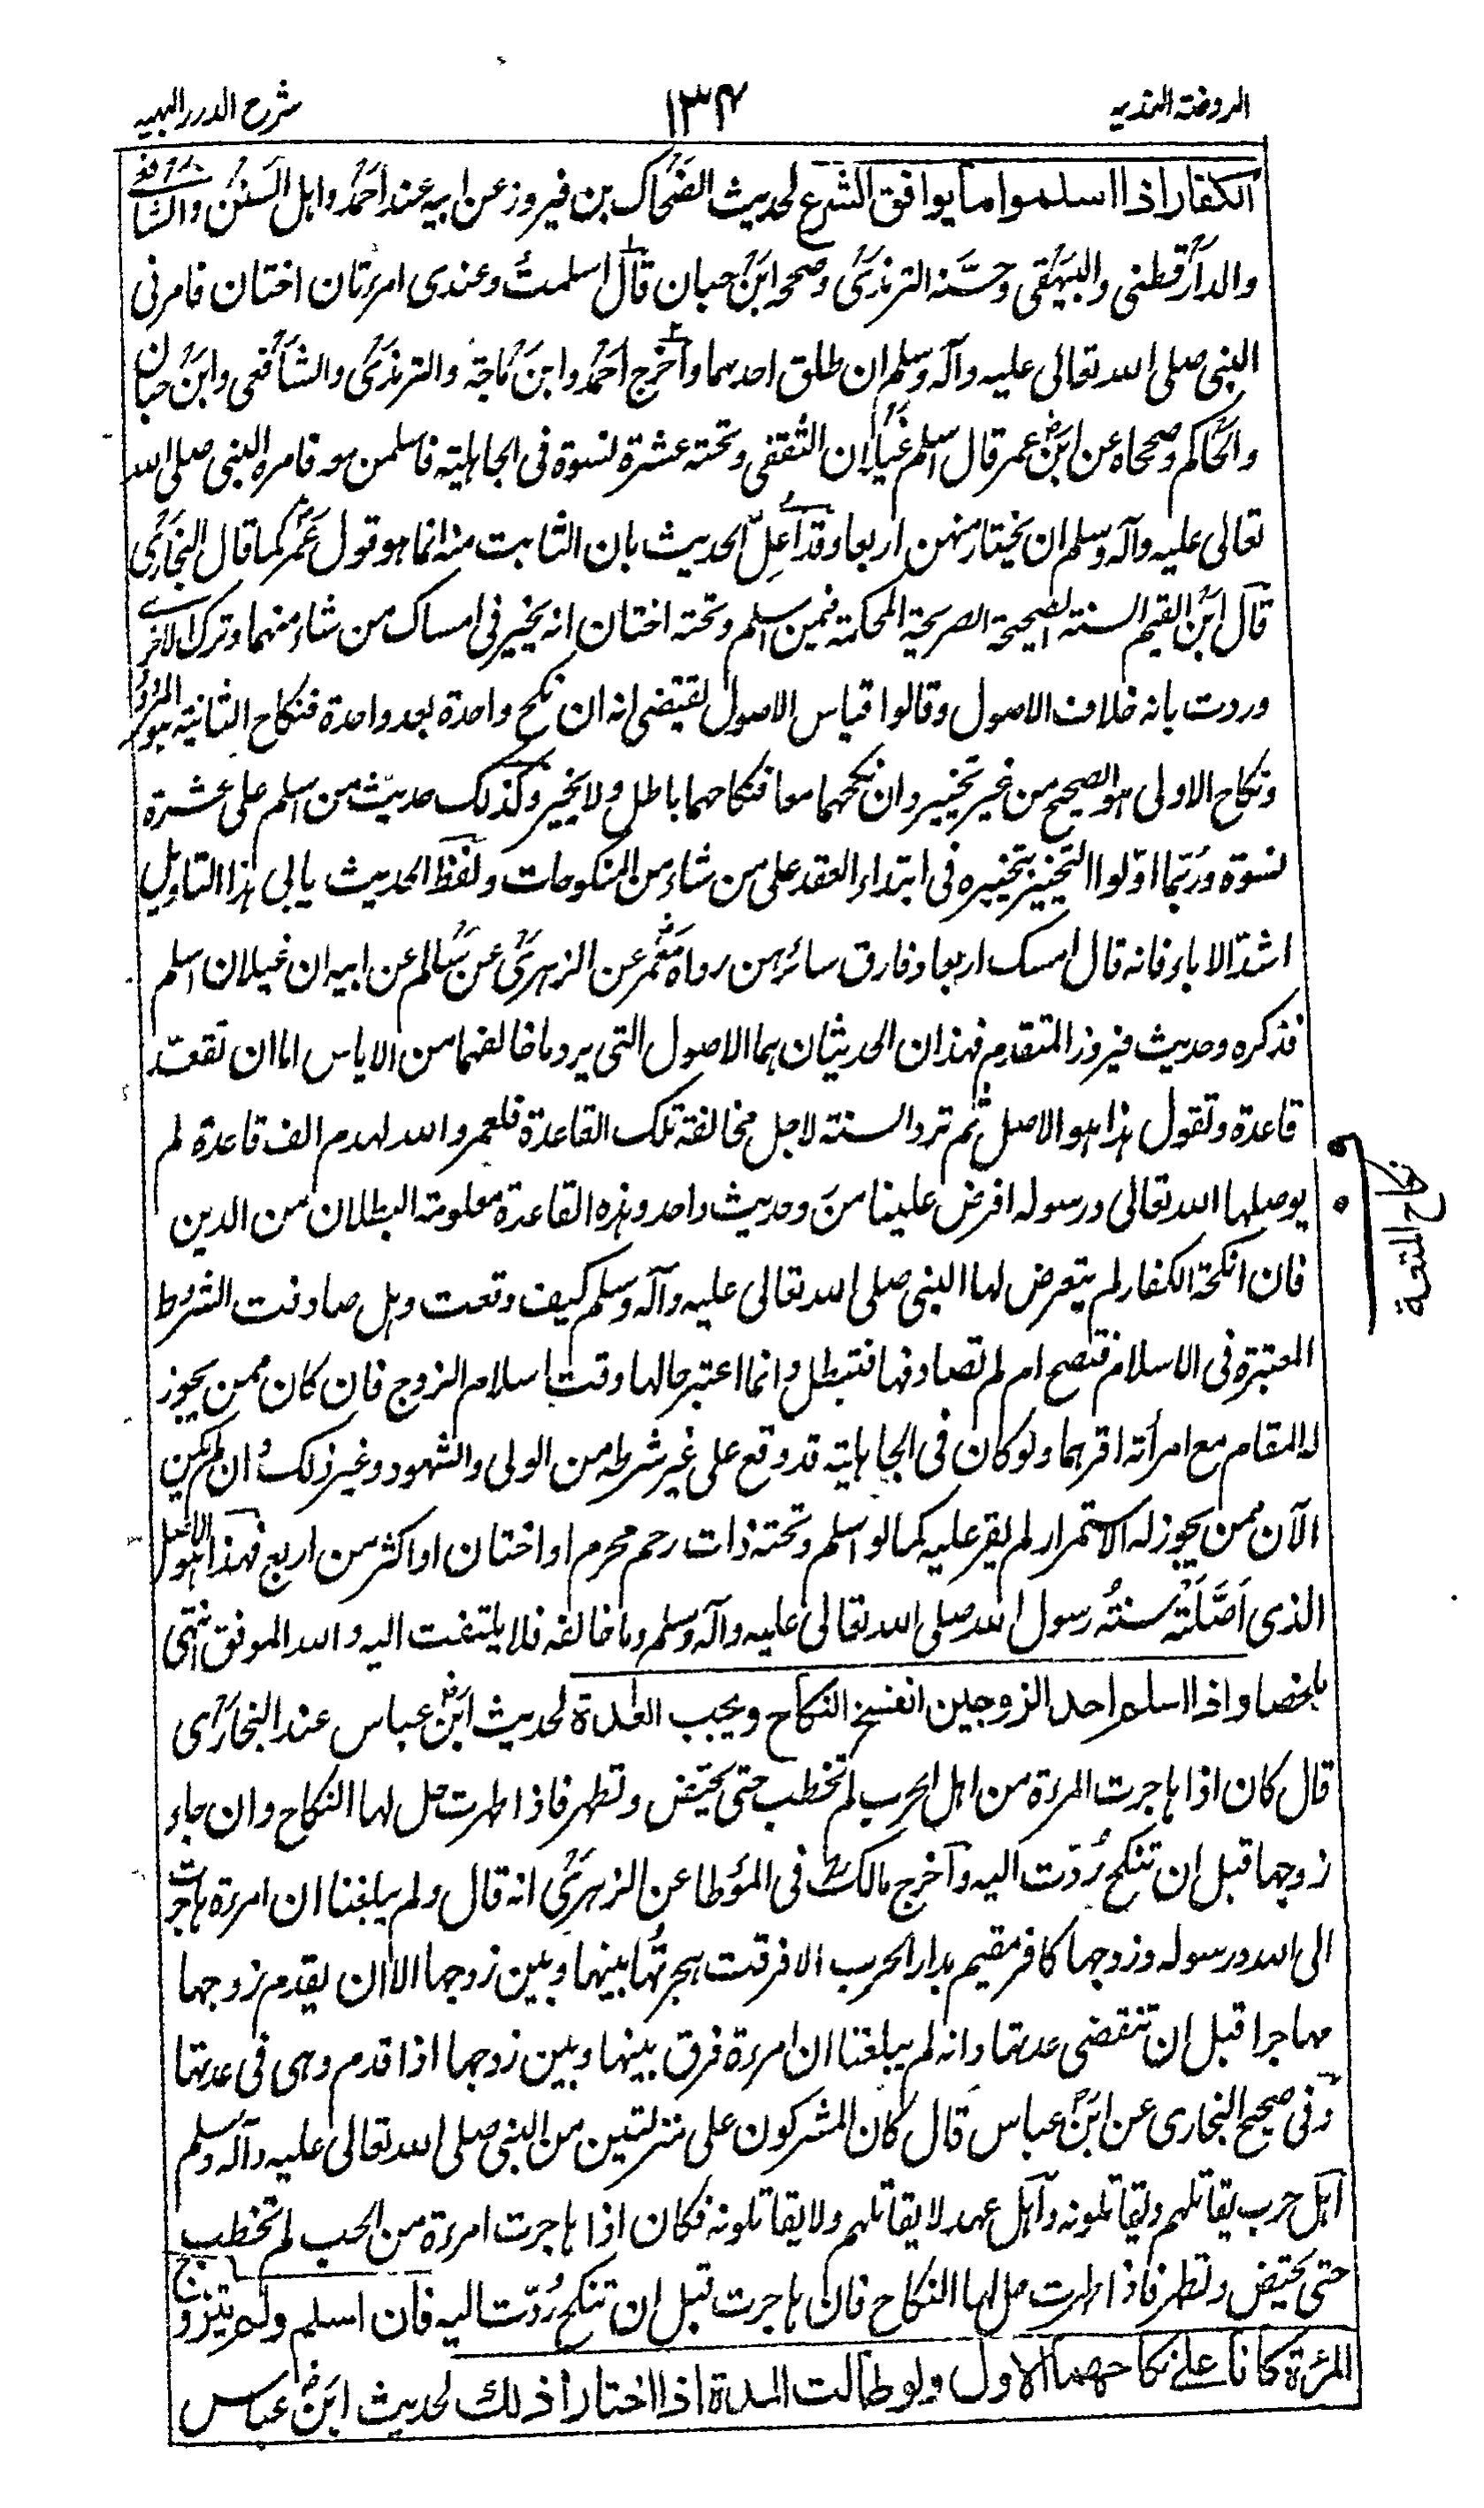 الروضة الندیه
١٣٤
شرح الدرر البهیه
الكفار اذا اسلموا ما يوافق الشرع لحديث الضحاك بن فيروز عن ابيه عند احمد واهل السنن والشافعي
والدارقطني والبيهقي وحسّنه الترمذي وصححه ابن حبان قال اسلمت وعندى امرءتان اختان فامرنى
النبى صلى الله تعالى عليه وآله وسلم ان طلق احدهما وآخرج احمد وابن ماجة والترمذى والشافعى وابن حبان
والحاكم وصححاه عن ابن عمر قال اسلم غيلان الثقفى وتحته عشرة نسوة فى الجاهلية فاسلمن معه فامره النبى صلى الله
تعالى عليه وآله وسلم ان يختار منهن اربعا وقد اُعِلّ الحديث بان الثابت منه انما هو قول عمر كما قال البخارى
قآل ابن القيم السنة الصحيحة الصريحة المحكمة فيمن اسلم وتحته اختان انه يخير فى امساك من شاء منهما وترك الاخرے
وردت بانه خلاف الاصول وقالوا قياس الاصول يقتضى انه ان نكح واحدة بعد واحدة فنكاح الثانية هو المردود
ونكاح الاولى هو الصحيح من غير تخيير وان نكحهما معا فنكاحهما باطل ولا يخير وكذلك حديث من اسلم على عشرة
نسوة وربّما اوّلوا التخيير بتخييره فى ابتداء العقد على من شاء من المنكوحات ولفظ الحديث يابى هذا التاويل
اشدّ الاباء فانه قال امسك اربعا وفارق سائرهن رواه معمر عن الزهرى عن سالم عن ابيه ان غيلان اسلم
فذكره وحديث فيروز المتقدم فهذان الحديثان هما الاصول التى يرد ما خالفهما من الاياس اما ان تقعّد
قاعدة وتقول هذا هو الاصل ثم ترد السنة لاجل مخالفة تلك القاعدة فلعمر والله لهدم الف قاعدة لم
يوصلها الله تعالى ورسوله افرض علينا من رد حديث واحد وهذه القاعدة معلومة البطلان من الدين
فان انكحة الكفار لم يتعرض لها النبى صلى الله تعالى عليه وآله وسلم كيف وقعت وهل صادفت الشروط
المعتبرة فى الاسلام فتصح ام لم تصادفها فتبطل وانما اعتبر حالها وقت اسلام الزوج فان كان ممن يجوز
له المقام مع امرأته اقرهما ولو كان فى الجاهلية قد وقع على غير شرطه من الولى والشهود وغير ذلك وان لم يكن
الآن ممن يجوز له الاستمرار لم يقر عليه كما لو اسلم وتحته ذات رحم محرم او اختان او اكثر من اربع فهذا هو الاصل
الذى اَصَّلَتْه سنةُ رسول الله صلى الله تعالى عليه وآله وسلم وما خالفه فلا يلتفت اليه والله الموفق انتهى
ملخصا واذا اسلم احد الزوجين انفسخ النكاح ويجب العدة لحديث ابن عباس عند البخارى
قال كان اذا هاجرت المرءة من اهل الحرب لم تخطب حتى تحيض وتطهر فاذا طهرت حل لها النكاح وان جاء
زوجها قبل ان تنكح رُدّت اليه وآخرج مالك فى المؤطا عن الزهرى انه قال ولم يبلغنا ان امرءة هاجرت
الى الله ورسوله وزوجها كافر مقيم بدار الحرب الا فرقت هجرتُها بينها وبين زوجها الا ان يقدم زوجها
مهاجرا قبل ان تنقضى عدتها وانه لم يبلغنا ان امرءة فرق بينها وبين زوجها اذا قدم وهى فى عدتها
وفى صحيح البخارى عن ابن عباس قال كان المشركون على منزلتين من النبى صلى الله تعالى عليه وآله وسلم
اهل حرب يقاتلهم ويقاتلونه وآهل عهد لا يقاتلهم ولا يقاتلونه فكان اذا هاجرت امرءة من الحرب لم تخطب
حتى تحيض وتطهر فاذا طهرت حل لها النكاح فان هاجرت قبل ان تنكح رُدّت اليه فان اسلم ولم تتزوج
المرءة كانا على نكاحهما الاول ولو طالت المدة اذا اختارا ذلك لحديث ابن عباس